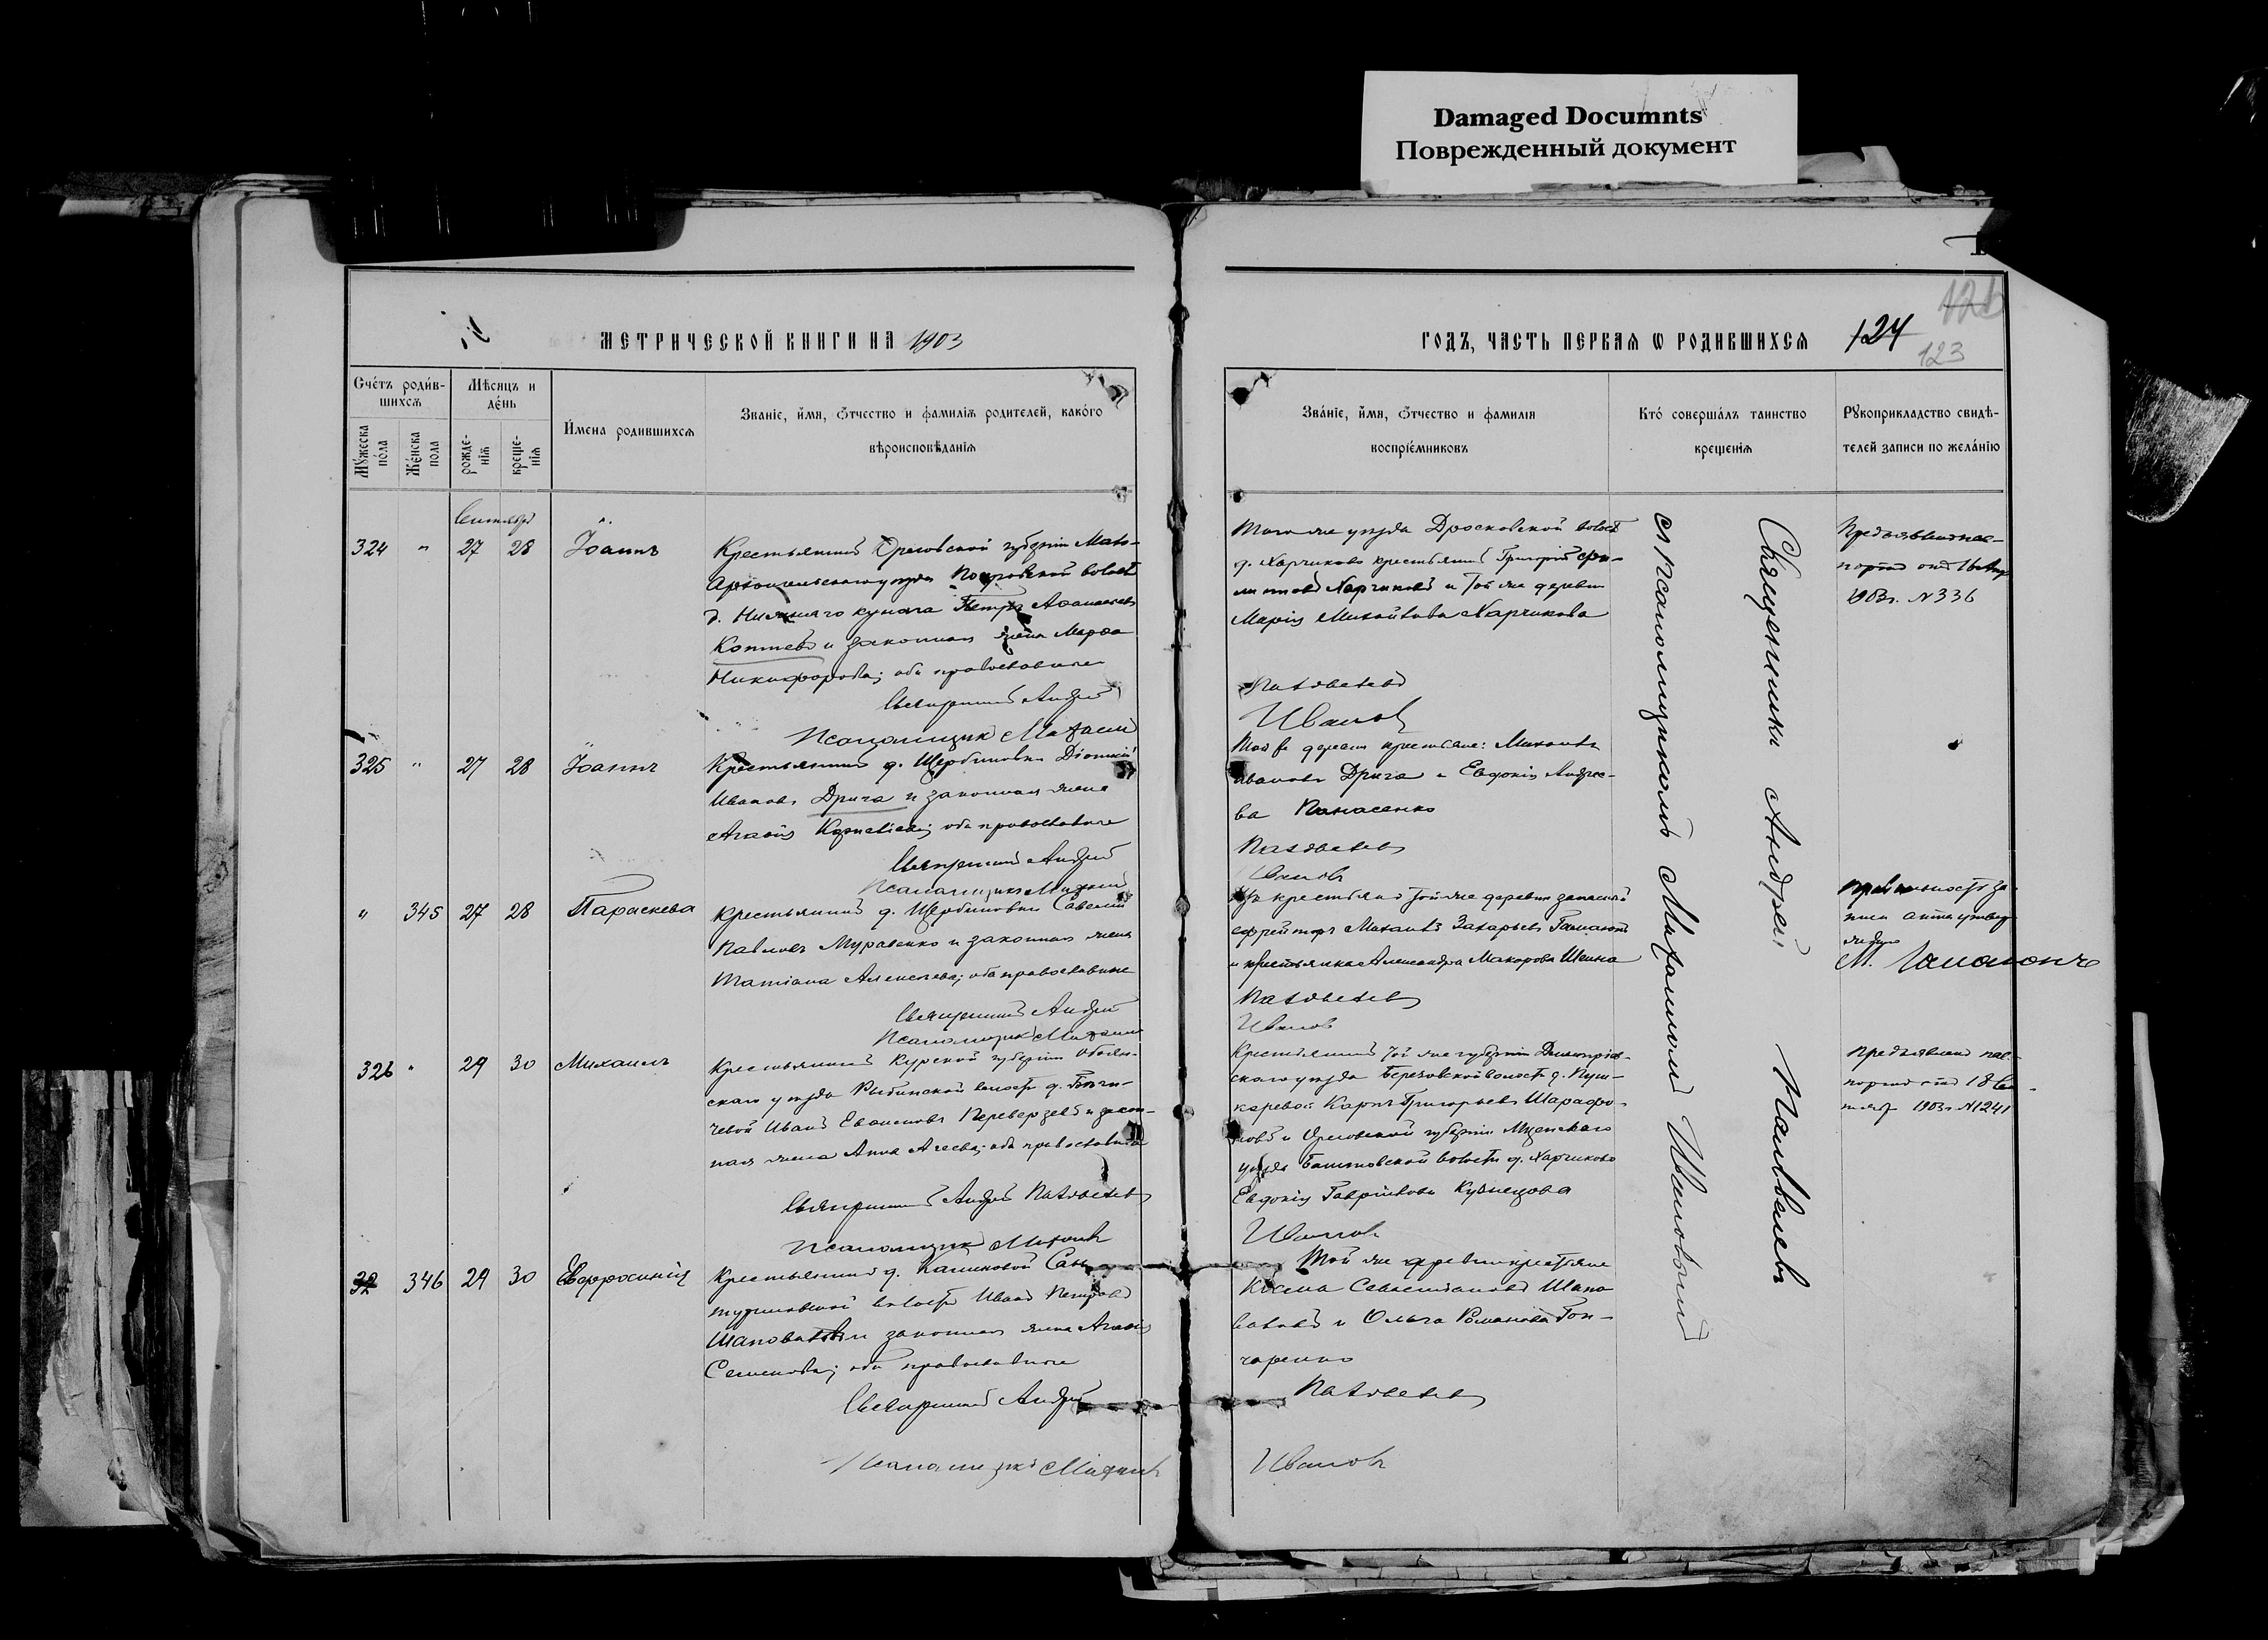 Damaged Documnts
Поврежденный документ
МЕТРИЧЕСКОЙ КНИГИ НА 1903
ГОДЪ, ЧАСТЬ ПЕРВАЯ Ѡ РОДИВШИХСЯ
124
123
Счетъ родив-
шихся
Мужеска
пола
Женска
пола
Мѣсяцъ и
день
рожде-
нія
креще-
нія
Имена родившихся
Званіе, имя, отчество и фамилія родителей, какого
вѣроисповѣданія
Званіе, имя, отчество и фамилія
воспріемниковъ
Кто совершалъ таинство
крещенія
Рукоприкладство свидѣ-
телей записи по желанію
Сентябрь
324 " 27 28 Іоаннъ
Крестьянинъ Орловской губерніи Мало-
Архангельскаго уѣзда Покровской волости
д. Нижняго Петръ Аѳанасьевъ
Коптевъ и законная жена Марѳа
Никифорова; оба православные
Священникъ Андрей
Псаломщикъ Михаилъ
Того же уѣзда Дросковской волости
д. Харчиково крестьянинъ Григорій
Харчиковъ и той же деревни
Марія Михайлова Харчикова
Иванов
Предъявленъ пас-
портъ отъ 16
1903г. №336
325 " 27 28 Іоаннъ
Крестьянинъ д. Щербиновки Діонисій
Ивановъ Дрига и законная жена
Агаѳія Корнеліева; оба православные
Священникъ Андрей
Псаломщикъ Михаилъ
Той же деревни крестьяне: Михаилъ
Ивановъ Дрига и Евдокія Андрее-
ва Панасенко
Иванов
" 345 27 28 Параскева
Крестьянинъ д. Щербиновки Савелій
Павловъ Муравенко и законная жена
Татіана Алексѣева; оба православные
Священникъ Андрей
Псаломщикъ Михаилъ
крестьянъ той же деревни запасный
ефрейторъ Михаилъ Захарьевъ
и крестьянка Александра Макарова
Иванов
Правильность за-
писи акта утвер-
ждаю
М.
326 " 29 30 Михаилъ
Крестьянинъ Курской губерніи Обоян-
скаго уѣзда Рыбинской волости д.
Иванъ Переверзевъ и закон-
ная жена Анна Агеева; оба православные
Священникъ Андрей
Псаломщикъ Михаилъ
Крестьянинъ той же губерніи Дмитріев-
скаго уѣзда Березовской волости д. Пуш-
каревой Карпъ Григорьевъ Шарафо-
новъ и Орловской губерніи Мценскаго
уѣзда волости д. Харчиково
Евдокія Гавріилова Кузнецова
Иванов
Предъявленъ пас-
портъ отъ 18 Сен-
тября 1903г. №1241
32 346 29 30 Евфросинія
Крестьянинъ д. Калиновой Сан-
туриновской волости Иванъ Петровъ
Шаповаловъ и законная жена Агаѳія
Семенова; оба православные
Священникъ Андрей
Псаломщикъ Михаилъ
Той же деревни крестьяне
Косма Севастіановъ Шапо-
валовъ и Ольга Романова Гон-
чаренко
Иванов
Священникъ Андрей
съ псаломщикомъ Михаиломъ Ивановымъ